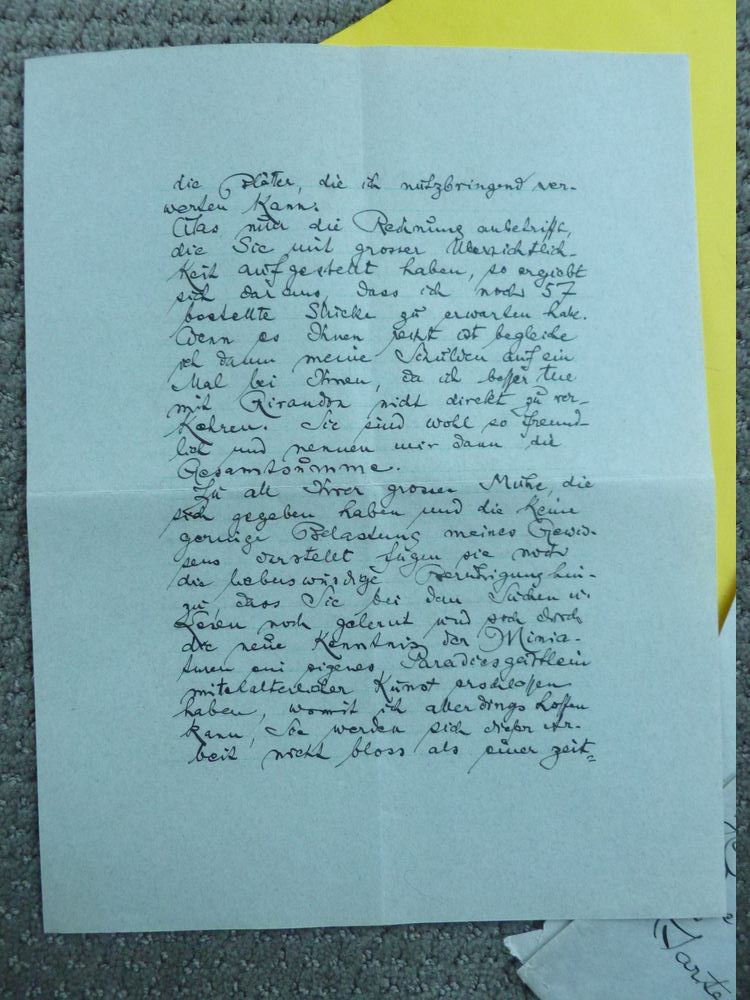 die Blätter, die ich nutzbringend ver-
werten kann.
Was nun die Rechnung anbetrifft,
die Sie mit grosser Übersichtlich-
keit aufgestellt haben, so ergiebt
sich daraus, dass ich noch 57
bestellte Stücke zu erwarten habe.
Wenn es Ihnen recht ist begleiche
ich dann meine Schulden auf ein
Mal bei Ihnen, da ich besser tue
mit Giraudon nicht direkt zu ver-
kehren. Sie sind wohl so freund-
lich und nennen mir dann die
Gesamtsumme.
Zu all Ihrer grossen Mühe, die
sich gegeben haben und die keine
geringe Belastung meines Gewis-
sens darstellt fügen sie noch
die liebenswürdige Beruhigung hin-
zu, dass Sie bei dem Suchen u.
Lesen noch gelernt und sich durch
die neue Kenntnis der Minia-
turen ein eigenes Paradiesgärtlein
mittelalterlicher Kunst erschlossen
haben, womit ich allerdings hoffen
kann, Sie werden sich dieser Ar-
beit nicht bloss als einer zeit-
Garte